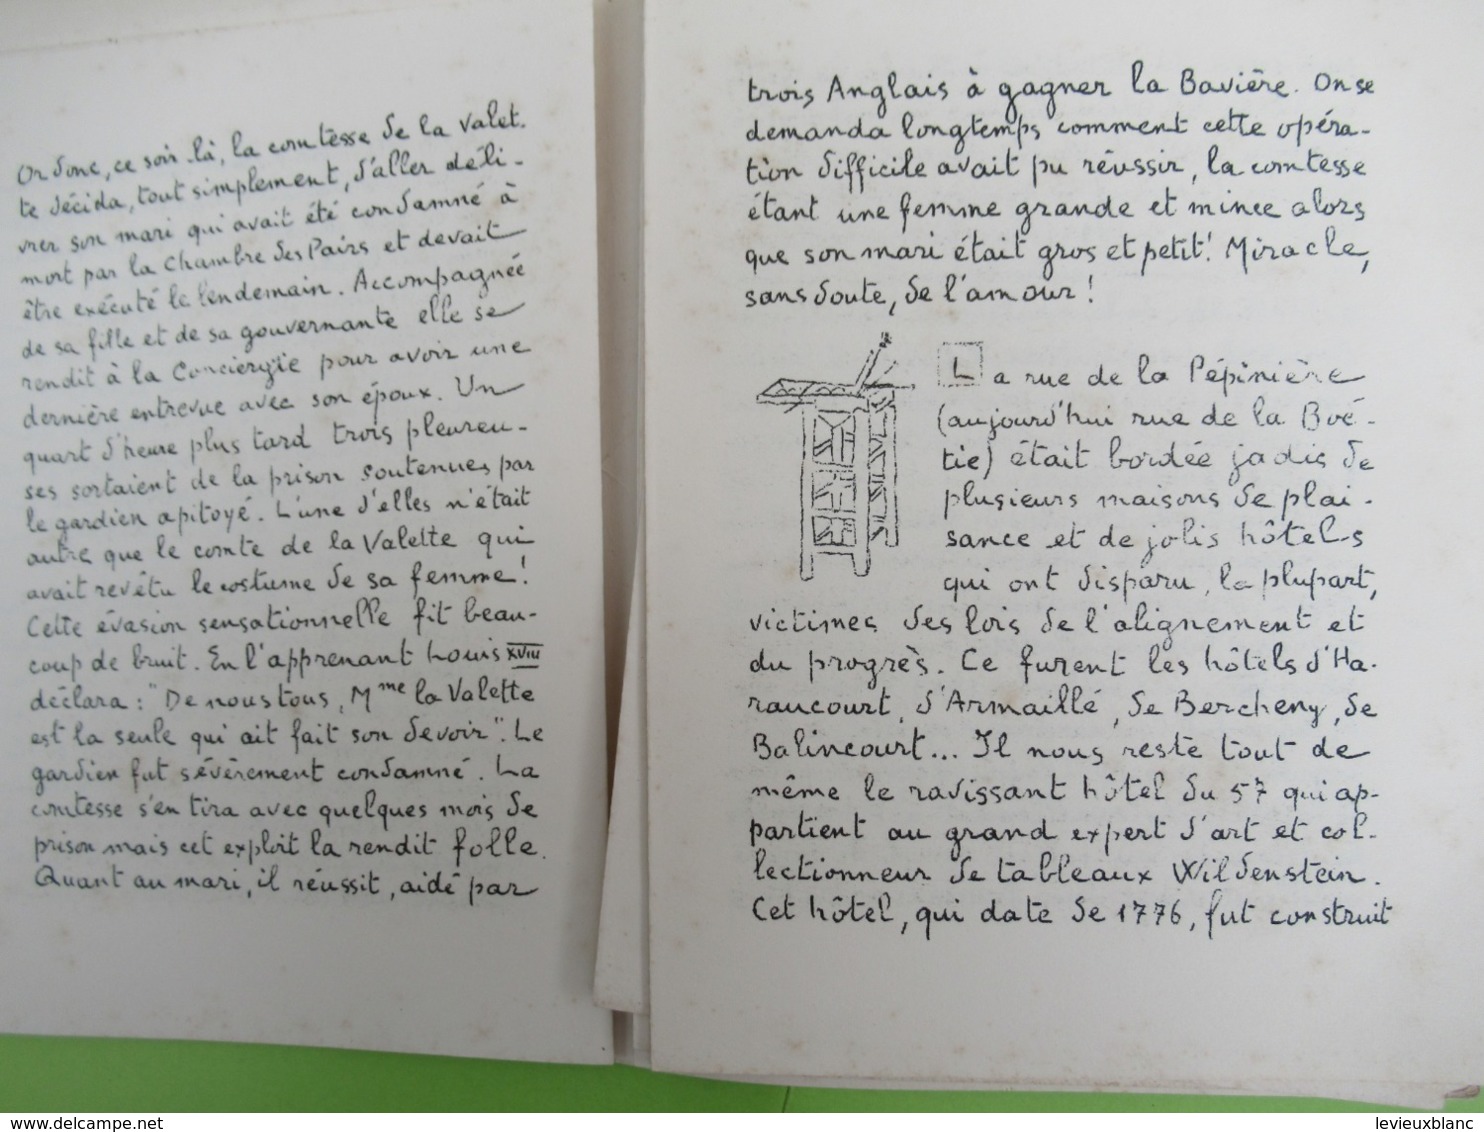 Or donc, ce soir-là, la comtesse de la Valet.
te décida, tout simplement, d'aller déli-
vrer son mari qui avait été condamné à
mort par la Chambre des Pairs et devait
être exécuté le lendemain. Accompagnée
de sa fille et de sa gouvernante elle se
rendit à la Conciergïe pour avoir une
dernière entrevue avec son époux. Un
quart d'heure plus tard trois pleureu-
ses sortaient de la prison soutenues par
le gardien apitoyé. L'une d'elles n'était
autre que le comte de la Valette qui
avait revêtu le costume de sa femme!
Cette évasion sensationnelle fit beau-
coup de bruit. En l'apprenant Louis XVIII
déclara : "De nous tous, Mme la Valette
est la seule qui ait fait son devoir". Le
gardien fut sévèrement condamné. La
comtesse s'en tira avec quelques mois de
prison mais cet exploit la rendit folle.
Quant au mari, il réussit, aidé par
trois Anglais à gagner la Bavière. On se
demanda longtemps comment cette opéra-
tion difficile avait pu réussir, la comtesse
étant une femme grande et mince alors
que son mari était gros et petit! Miracle,
sans doute, de l'amour!
La rue de la Pépinière
(aujourd'hui rue de la Boé-
tie) était bordée jadis de
plusieurs maisons de plai-
sance et de jolis hôtels
qui ont disparu, la plupart,
victimes des lois de l'alignement et
du progrès. Ce furent les hôtels d'Ha-
raucourt, d'Armaillé, de Bercheny, de
Balincourt... Il nous reste tout de
même le ravissant hôtel du 57 qui ap-
partient au grand expert d'art et col-
lectionneur de tableaux Wildenstein.
Cet hôtel, qui date de 1776, fut construit
delcampe.net
levieuxblanc